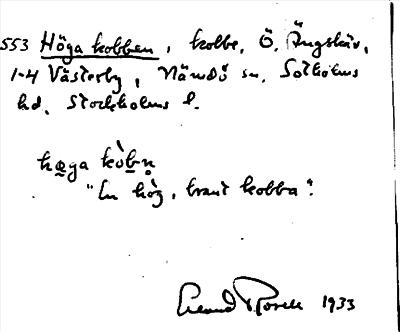 553 Höga kobben, kobbe, Ö. Ängskär,
1-4 Västerby, Nämdö sn, Sotholms
hd, Stockholms l.
høga kòbn̥
"En hög, brant kobba".
1933